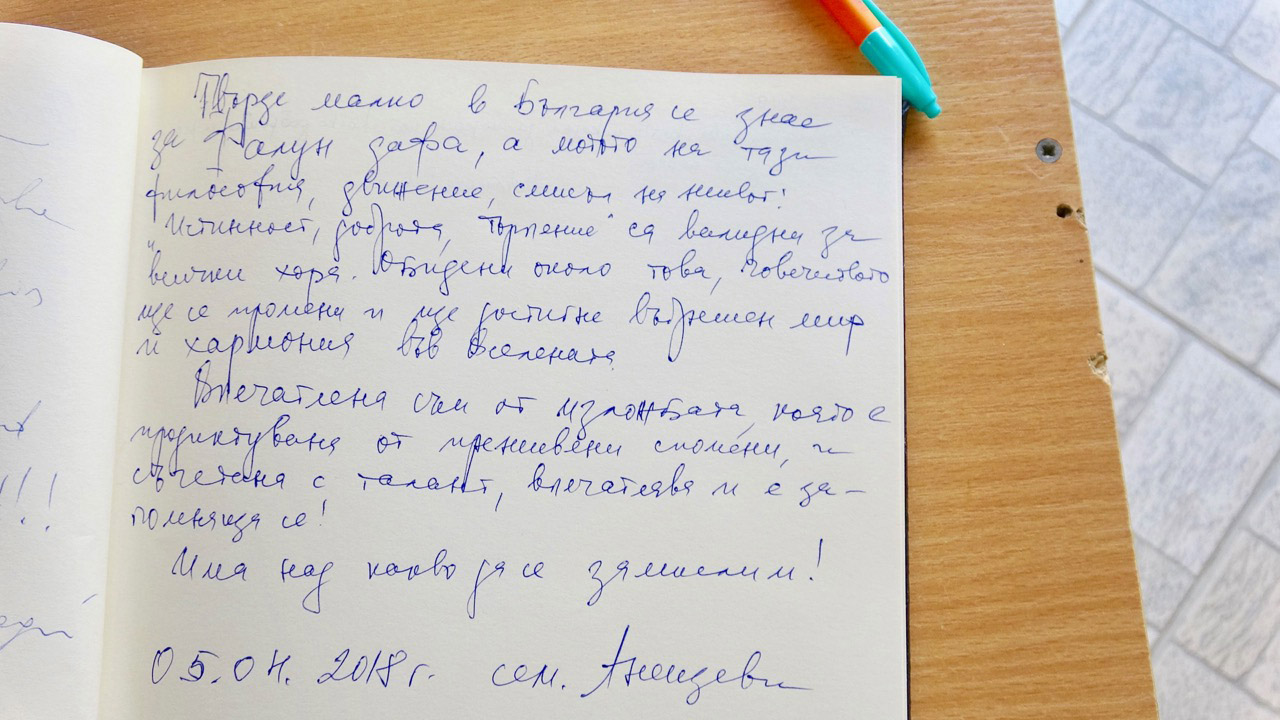 Твърде малко в България се знае
за Фалун дафа, а мотото на тази
философия, движение, смисъл на живот:
"Истинност, доброта, търпение" са валидни за
всички хора. Обединени около това, човечеството
ще се промени и ще достигне вътрешен мир
и хармония във Вселената.
Впечатлена съм от изложбата, която е
продиктувана от преживени спомени, и
съчетана с талант, впечатлява и е за-
помняща се!
Има над какво да се замислим!
05.04.2018 г. сем.